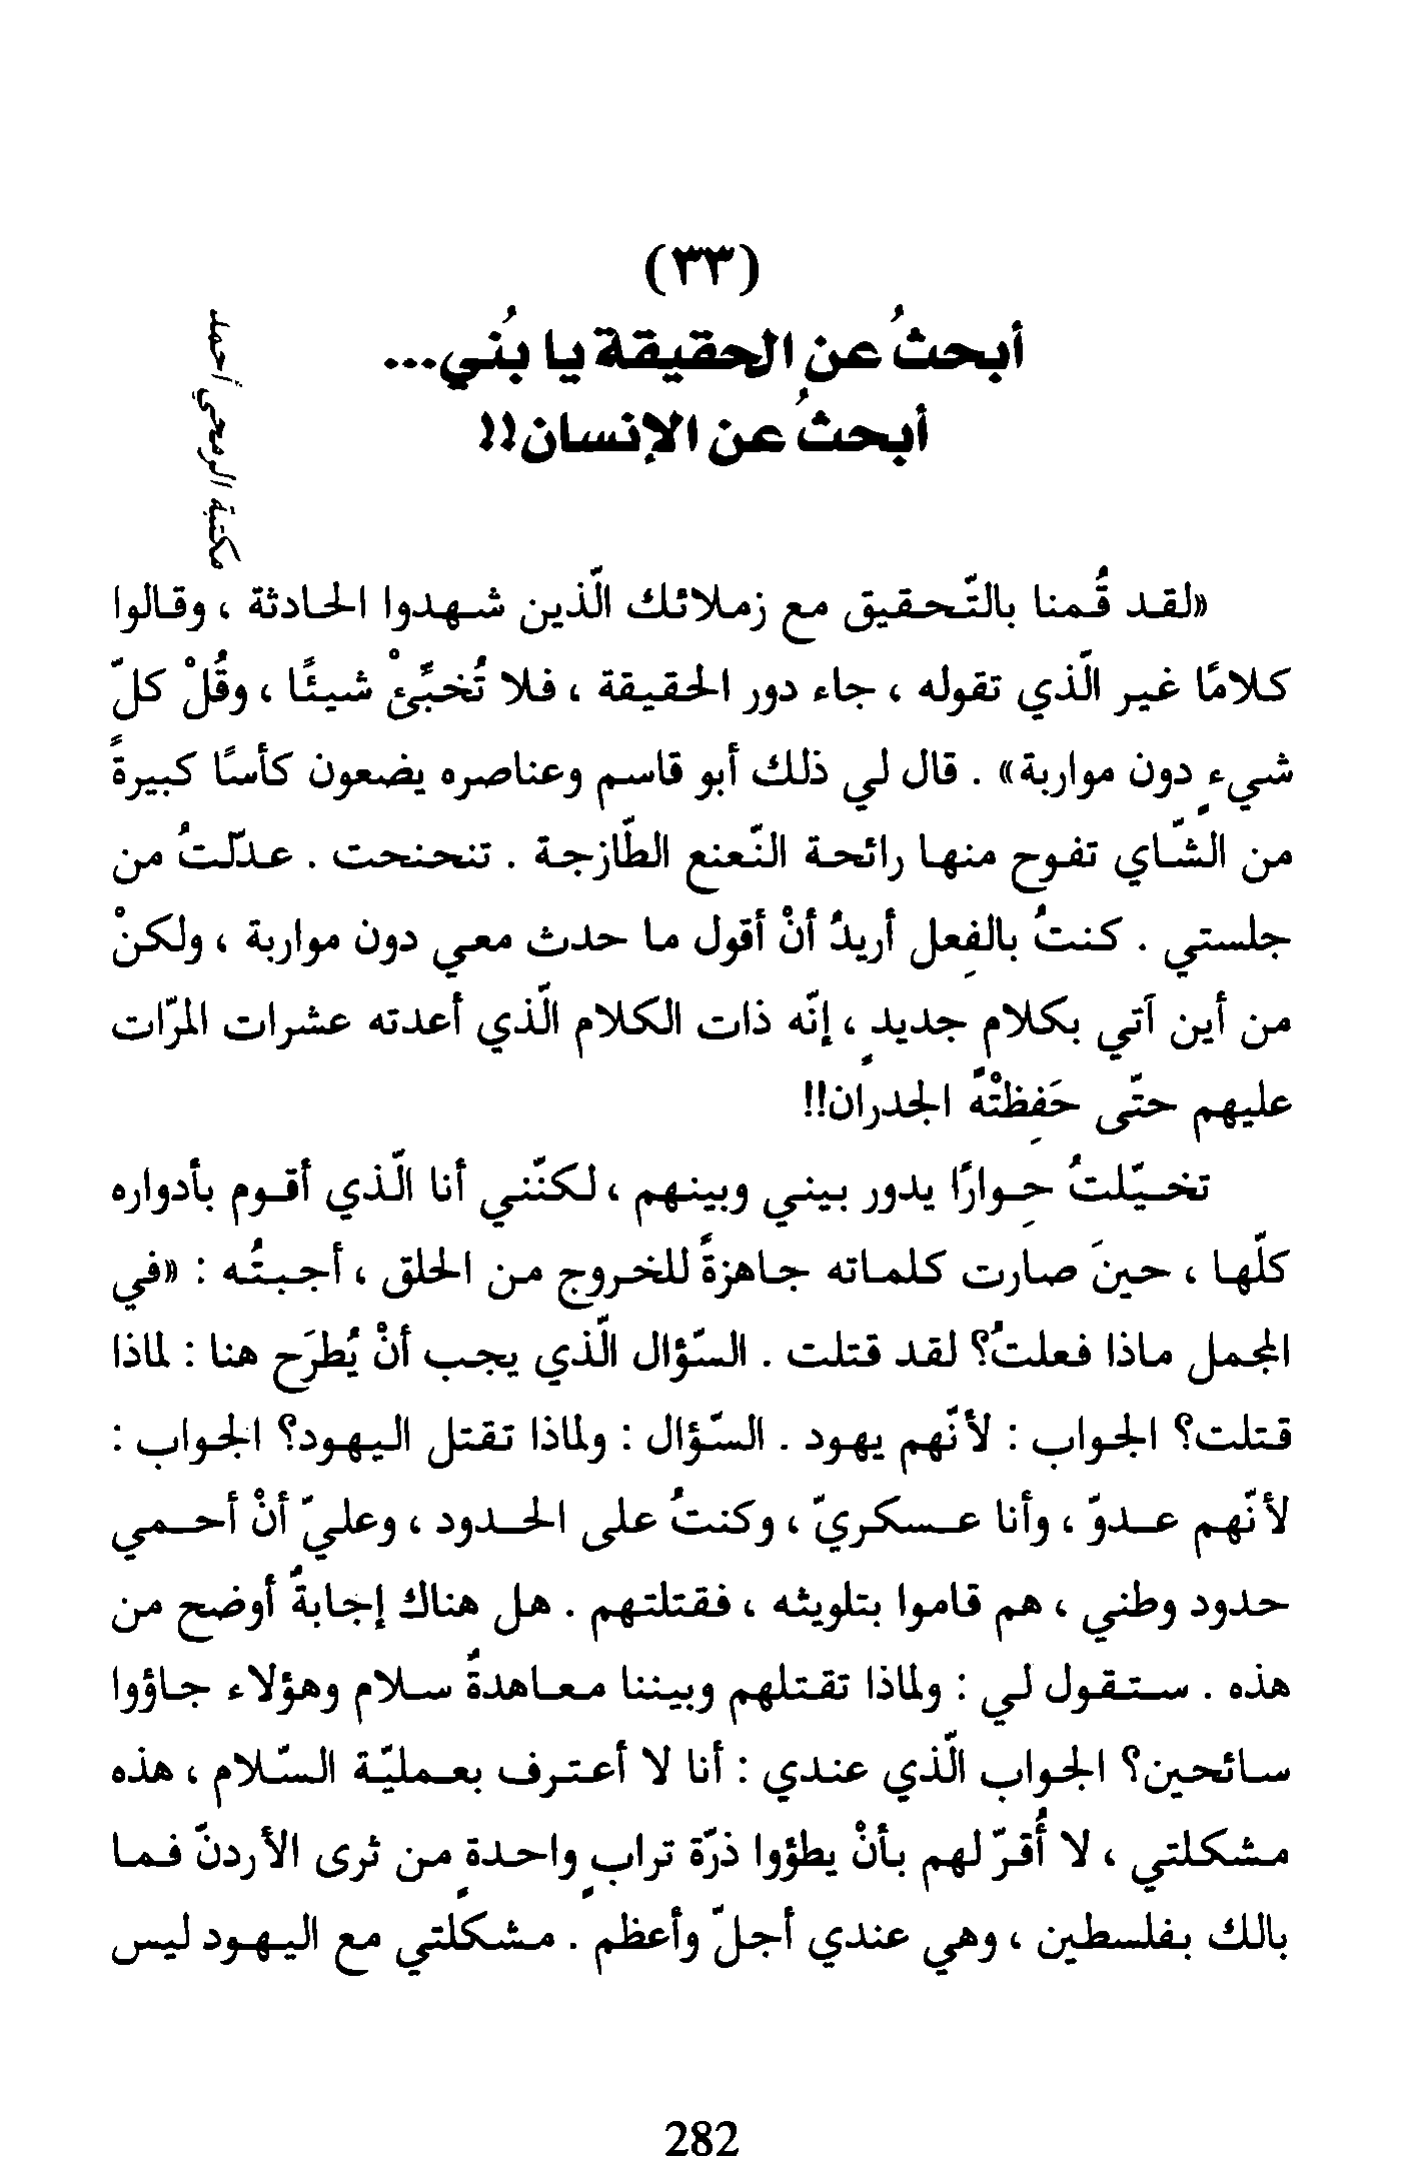 (٣٣)
أبحثُ عن الحقيقة يا بُني...
أبحثُ عن الإنسان!!
مكتبة الرمحي أحمد
«لقد قُمنا بالتّحقيق مع زملائك الّذين شهدوا الحادثة ، وقالوا
كلامًا غير الّذي تقوله ، جاء دور الحقيقة ، فلا تُخبّئْ شيئًا ، وقُلْ كلّ
شيءٍ دون مواربة» . قال لي ذلك أبو قاسم وعناصره يضعون كأسًا كبيرةً
من الشّاي تفوح منها رائحة النّعنع الطّازجة . تنحنحت . عدّلتُ من
جلستي . كنتُ بالفِعل أريدُ أنْ أقول ما حدث معي دون مواربة ، ولكنْ
من أين آتي بكلام جديدٍ ، إنّه ذات الكلام الّذي أعدته عشرات المرّات
عليهم حتّى حَفِظتْهُ الجدران!!
تخيّلتُ حِوارًا يدور بيني وبينهم ، لكنّني أنا الّذي أقوم بأدواره
كلّها ، حينَ صارت كلماته جاهزةً للخروج من الحلق ، أجبتُه : «في
المجمل ماذا فعلتُ؟ لقد قتلت . السّؤال الّذي يجب أنْ يُطرَح هنا : لماذا
قتلت؟ الجواب : لأنّهم يهود . السّؤال : ولماذا تقتل اليهود؟ الجواب :
لأنّهم عدوّ ، وأنا عسكريّ ، وكنتُ على الحدود ، وعليّ أنْ أحمي
حدود وطني ، هم قاموا بتلويثه ، فقتلتهم . هل هناك إجابةٌ أوضح من
هذه . ستقول لي : ولماذا تقتلهم وبيننا معاهدةُ سلام وهؤلاء جاؤوا
سائحين؟ الجواب الّذي عندي : أنا لا أعترف بعمليّة السّلام ، هذه
مشكلتي ، لا أُقرّ لهم بأنْ يطؤوا ذرّة ترابٍ واحدةٍ من ثرى الأردنّ فما
بالك بفلسطين ، وهي عندي أجلّ وأعظم . مشكلتي مع اليهود ليس
282